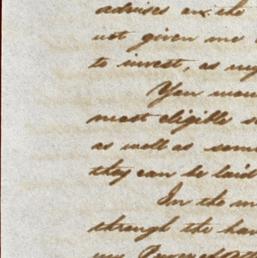 advises
not given me
to invest, as my
You wou
most eligible s
as well as som
they can be laid
In the m
through the han